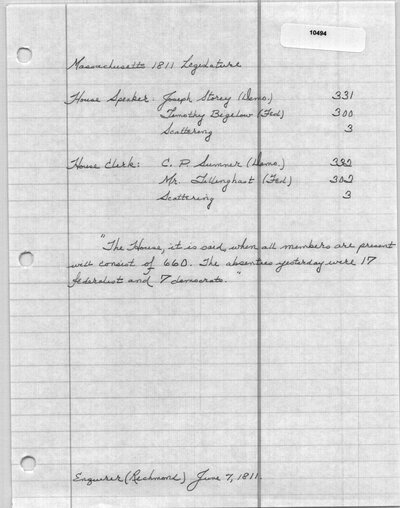 10494
Massachusetts 1811 Legislature
House Speaker: Joseph Storey (Demo.) 331
Timothy Bigelow (Fed) 300
Scattering 3
House Clerk: C. P. Sumner (Demo.)
Mr. Tillinghast (Fed) 302
Scattering 3
"The House, it is said, when all members are present
will consist of 660. The absenties yesterday were 17
federalist and 7 democrats."
Enquirer (Richmond) June 7, 1811.